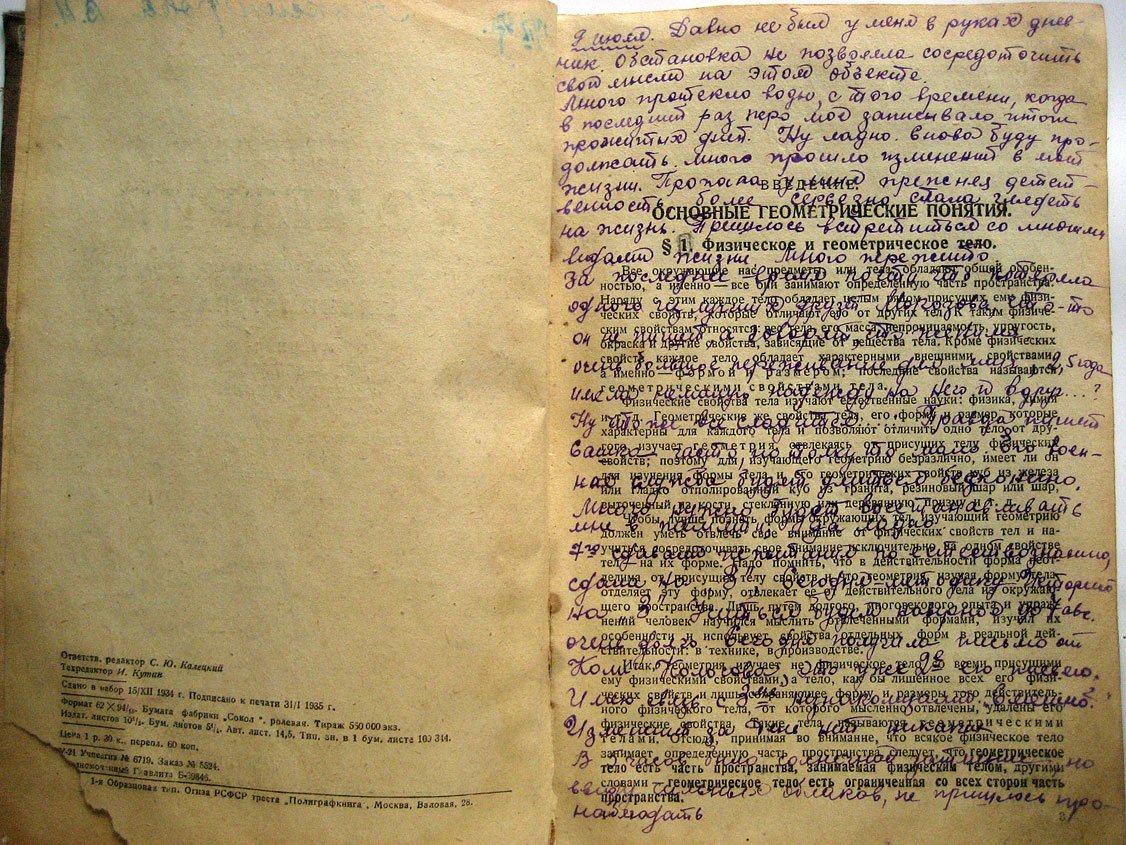 Ответств. редактор С. Ю. Калецкий
Техредактор И. Кутин
Сдано в набор 15/XII 1934 г. Подписано к печати 31/I 1935 г.
Формат 62 × 94/₁₆. Бумага фабрики „Сокол“, ролевая. Тираж 550 000 экз.
Авт. лист. 14,5. Тип. зн. в 1 бум. листе 100 344.
Цена 1 р. 30 к., перепл. 60 коп.
Учетгиз № 6719. Заказ № 5524.
Главлита Б-
1-я Образцовая тип. Огиза РСФСР треста „Полиграфкнига“, Москва, Валовая, 28.
9 июля. Давно не был у меня в руках днев-
ник. Обстановка не позволяла сосредоточить
свои мысли на этом объекте.
Много протекло воды, с того времени, когда
в последний раз перо моё записывало итоги
прожитых дней. Ну ладно вновь буду про-
должать. Много прошло изменений в моей
жизни. Пропала у меня прежняя детст-
венность, более серьезно стала глядеть
на жизнь. Пришлось встретиться со многими
видами жизни. Много пережито
За последнее время почти что потеряла
одного из
он не пишет, а говорят, что женился
очень большое переживание для меня, 2,5 года
имела надежду на него и вдруг....?
Ну что же Правда пишет
Сашка часто, но толку то мало. Его воен-
ная служба будет длиться бесконечно.
Много нужно будет восстанавливать
мне в
7го сдавали испытание по естествознанию,
сдала на „3“, сегодня методику истории
на „3“. Учиться будем наверно до 1 авг.
очень долго. Сегодня получила письмо от
Коли Это уже 2ое его письмо.
Имею связь с 3-мя
за
В 3 часов было солнечное затмение но
ввиду сильных облаков, не пришлось про-
наблюдать
ВВЕДЕНИЕ.
ОСНОВНЫЕ ГЕОМЕТРИЧЕСКИЕ ПОНЯТИЯ.
§ 1. Физическое и геометрическое тело.
Все окружающие нас предметы, или тела, обладают общей особен-
ностью, а именно — все они занимают определенную часть пространства.
Наряду с этим каждое тело обладает целым рядом присущих ему физи-
ческих свойств, которые отличают его от других тел. К таким физиче-
ским свойствам относятся: вес тела, его масса, непроницаемость, упругость,
окраска и другие свойства, зависящие от вещества тела. Кроме физических
свойств каждое тело обладает характерными внешними свойствами,
а именно — формой и размером; последние свойства называются
геометрическими свойствами тела.
Физические свойства тела изучают естественные науки: физика, химия
и т. д. Геометрические же свойства тела, его форму и размер, которые
характерны для каждого тела и позволяют отличить одно тело от дру-
гого изучает геометрия, отвлекаясь от присущих телу физических
свойств; поэтому для изучающего геометрию безразлично, имеет ли он
для изучения формы тела и его геометрических свойств куб из железа
или гладко отполированный куб из гранита, резиновый шар или шар,
выточенный из кости, стеклянную или деревянную призму и т. д.
Чтобы лучше познать формы окружающих тел, изучающий геометрию
должен уметь отвлечь свое внимание от физических свойств тел и на-
учиться сосредоточивать свое внимание исключительно на одном свойстве
тел — на их форме. Надо помнить, что в действительности форма неот-
делима от присущих телу свойств и что геометрия, изучая форму тела,
отделяет эту форму, отвлекает ее от действительного тела из окружаю-
щего пространства. Лишь путем долгого, многовекового опыта и упраж-
нений человек научился мыслить отвлеченными формами, изучил их
особенности и использует свойства отдельных форм в реальной дей-
ствительности: в технике, в производстве.
Итак, геометрия изучает не физическое тело со всеми присущими
ему физическими свойствами, а тело, как бы лишенное всех его физи-
ческих свойств и лишь сохраняющее форму и размеры того действитель-
ного физического тела, от которого мысленно отвлечены, удалены его
физические свойства. Такие тела называются геометрическими
телами. Отсюда, принимая во внимание, что всякое физическое тело
занимает определенную часть пространства, следует, что геометрическое
тело есть часть пространства, занимаемая физическим телом, другими
словами — геометрическое тело есть ограниченная со всех сторон часть
пространства.
3